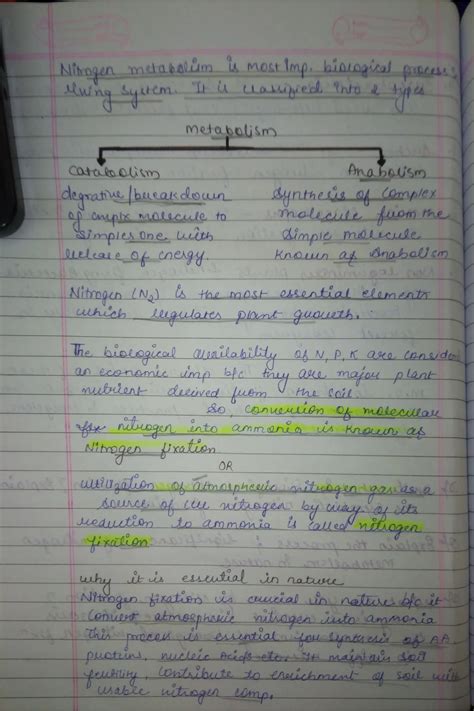 Nitrogen metabolism is most imp. biological process
living system. It is classified into 2 types
metabolism
Catabolism Anabolism
degrative/breakdown Synthesis of Complex
of cmplx molecule to molecule from the
simples one with simple molecule
release of energy. known as Anabolism
Nitrogen (N2) is the most essential elements
which regulates plant growth.
The biological availability of N, P, K are conside
an economic imp b/c they are major plant
nutrient derived from the soil
So, convertion of molecular
nitrogen into ammonia is known as
Nitrogen fixation
OR
utilization of atmospheric nitrogen gas as a
source of nitrogen by way of its
reduction to ammonia is called nitrogen
fixation
why it is essential in nature
Nitrogen fixation is crucial in nature b/c it
Convert atmosphric nitrogen into ammonia
this process is essential for synthesis of AA
protiens, nucleic Acids etc. It maintain soil
fertility, contribute to enrichment of soil with
usable nitrogen comp.